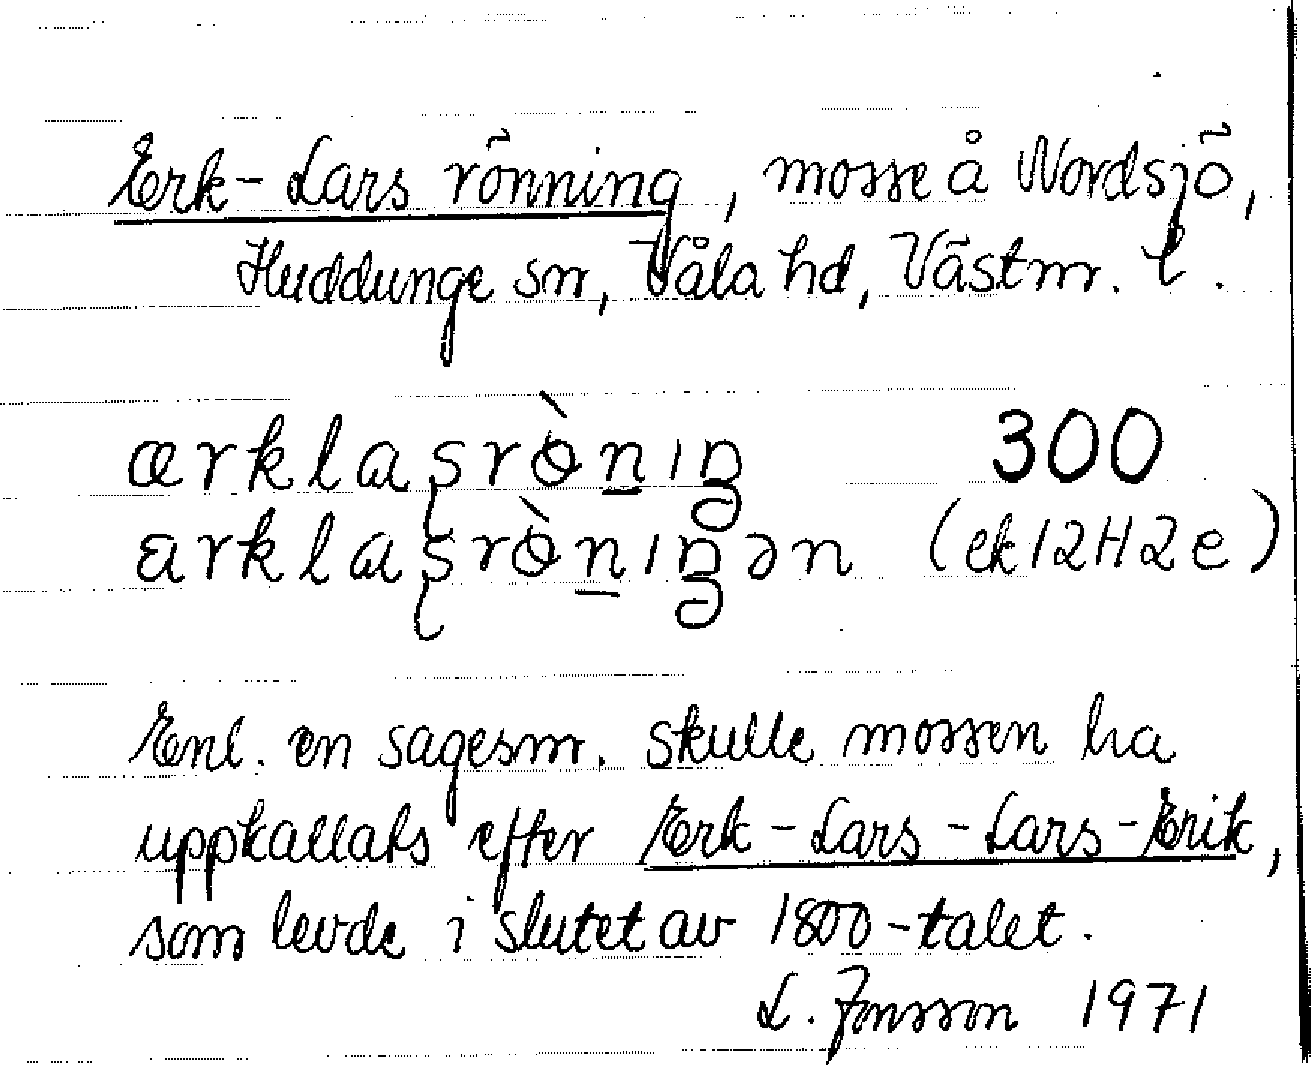 Erk-Lars rönning, mosse å Nordsjö,
Huddunge sn, Våla hd, Västm. l.
ærklaʂrònıŋ 300
arklaʂrònıŋən (ek12H2e)
Enl. en sagesm. skulle mossen ha
uppkallats efter Erk-Lars-Lars-Erik,
som levde i slutet av 1800-talet.
L. Jonsson 1971